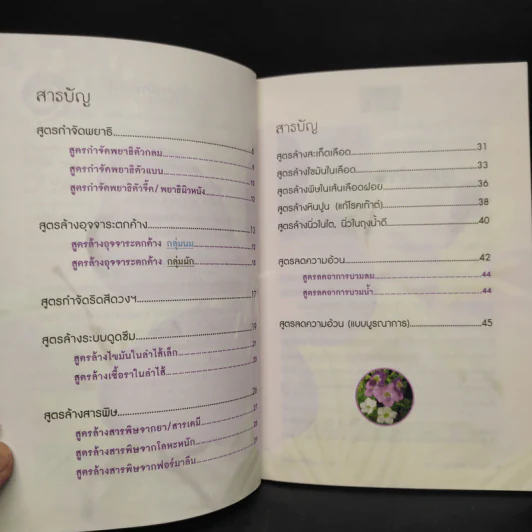 สารบัญ
สูตรกำจัดพยาธิ
สูตรกำจัดพยาธิตัวกลม
สูตรกำจัดพยาธิตัวแบน
สูตรกำจัดพยาธิตัวจี๊ด/พยาธิผิวหนัง
สูตรล้างอุจจาระตกค้าง
สูตรล้างอุจจาระตกค้าง กลุ่มนม
สูตรล้างอุจจาระตกค้าง กลุ่มผัก
สูตรกำจัดริดสีดวงฯ 17
สูตรล้างระบบดูดซึม
สูตรล้างไขมันในลำไส้เล็ก
สูตรล้างเชื้อราในลำไส้
สูตรล้างสารพิษ
สูตรล้างสารพิษจากยา/สารเคมี
สูตรล้างสารพิษจากโลหะหนัก
สูตรล้างสารพิษจากฟอร์มาลีน
สารบัญ
สูตรล้างสะเก็ดเลือด 31
สูตรล้างไขมันในเลือด 33
สูตรล้างพิษในเส้นเลือดฝอย 36
สูตรล้างหินปูน (แก้โรคเก๊าต์) 38
สูตรล้างนิ่วในไต, นิ่วในถุงน้ำดี 40
สูตรลดความอ้วน 42
สูตรลดอาการบวมลม 44
สูตรลดอาการบวมน้ำ 44
สูตรลดความอ้วน (แบบบูรณาการ) 45